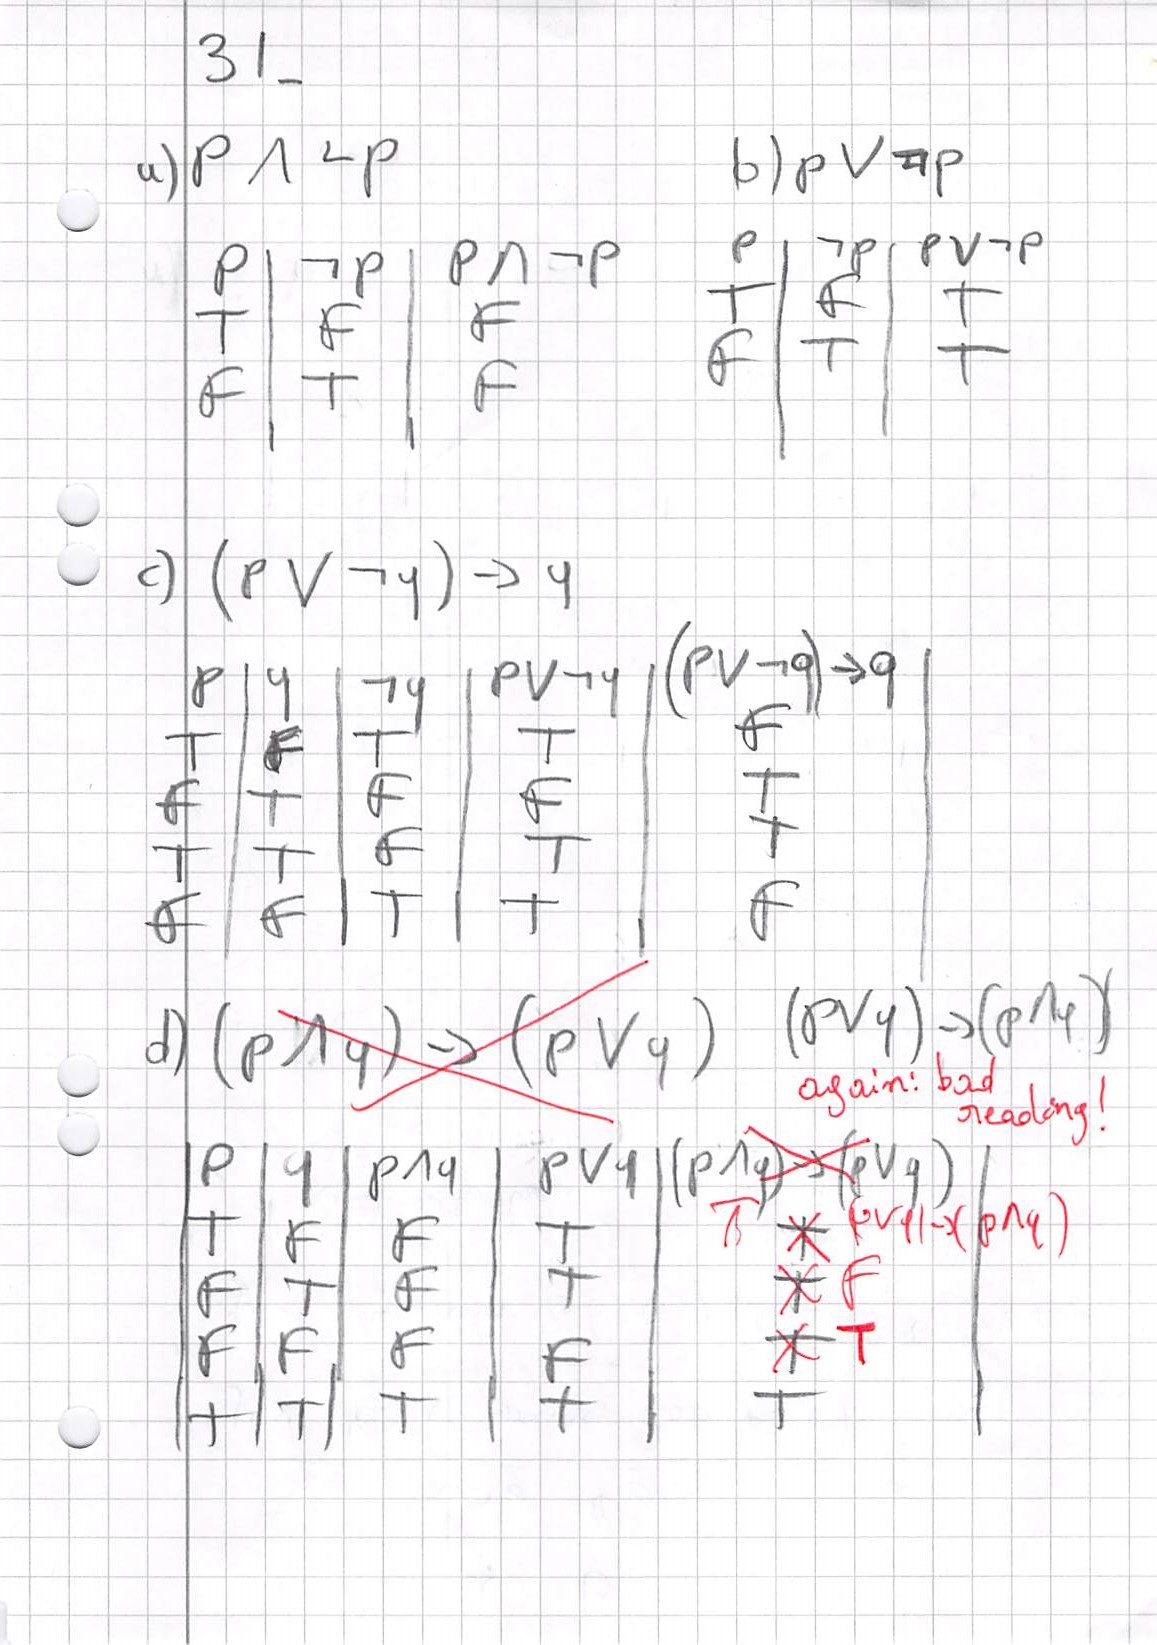 31_
a) p ∧ ¬p
b) p ∨ ¬p
p | ¬p | p ∧ ¬p
T | F | F
F | T | F
p | ¬p | p∨¬p
T | F | T
F | T | T
c) (p ∨ ¬q) → q
p | q | ¬q | p∨¬q | (p∨¬q)→q |
T | F | T | T | F
F | T | F | F | T
T | T | F | T | T
F | F | T | T | F
d) (p∧q) → (p∨q) (p∨q)→(p∧q)
again: bad
reading!
| p | q | p∧q | p∨q | (p∧q)→(p∨q) |
(p∨q)→(p∧q)
T | F | F | T | T
F | T | F | T | T F
F | F | F | F | T T
| T | T | T | T | T